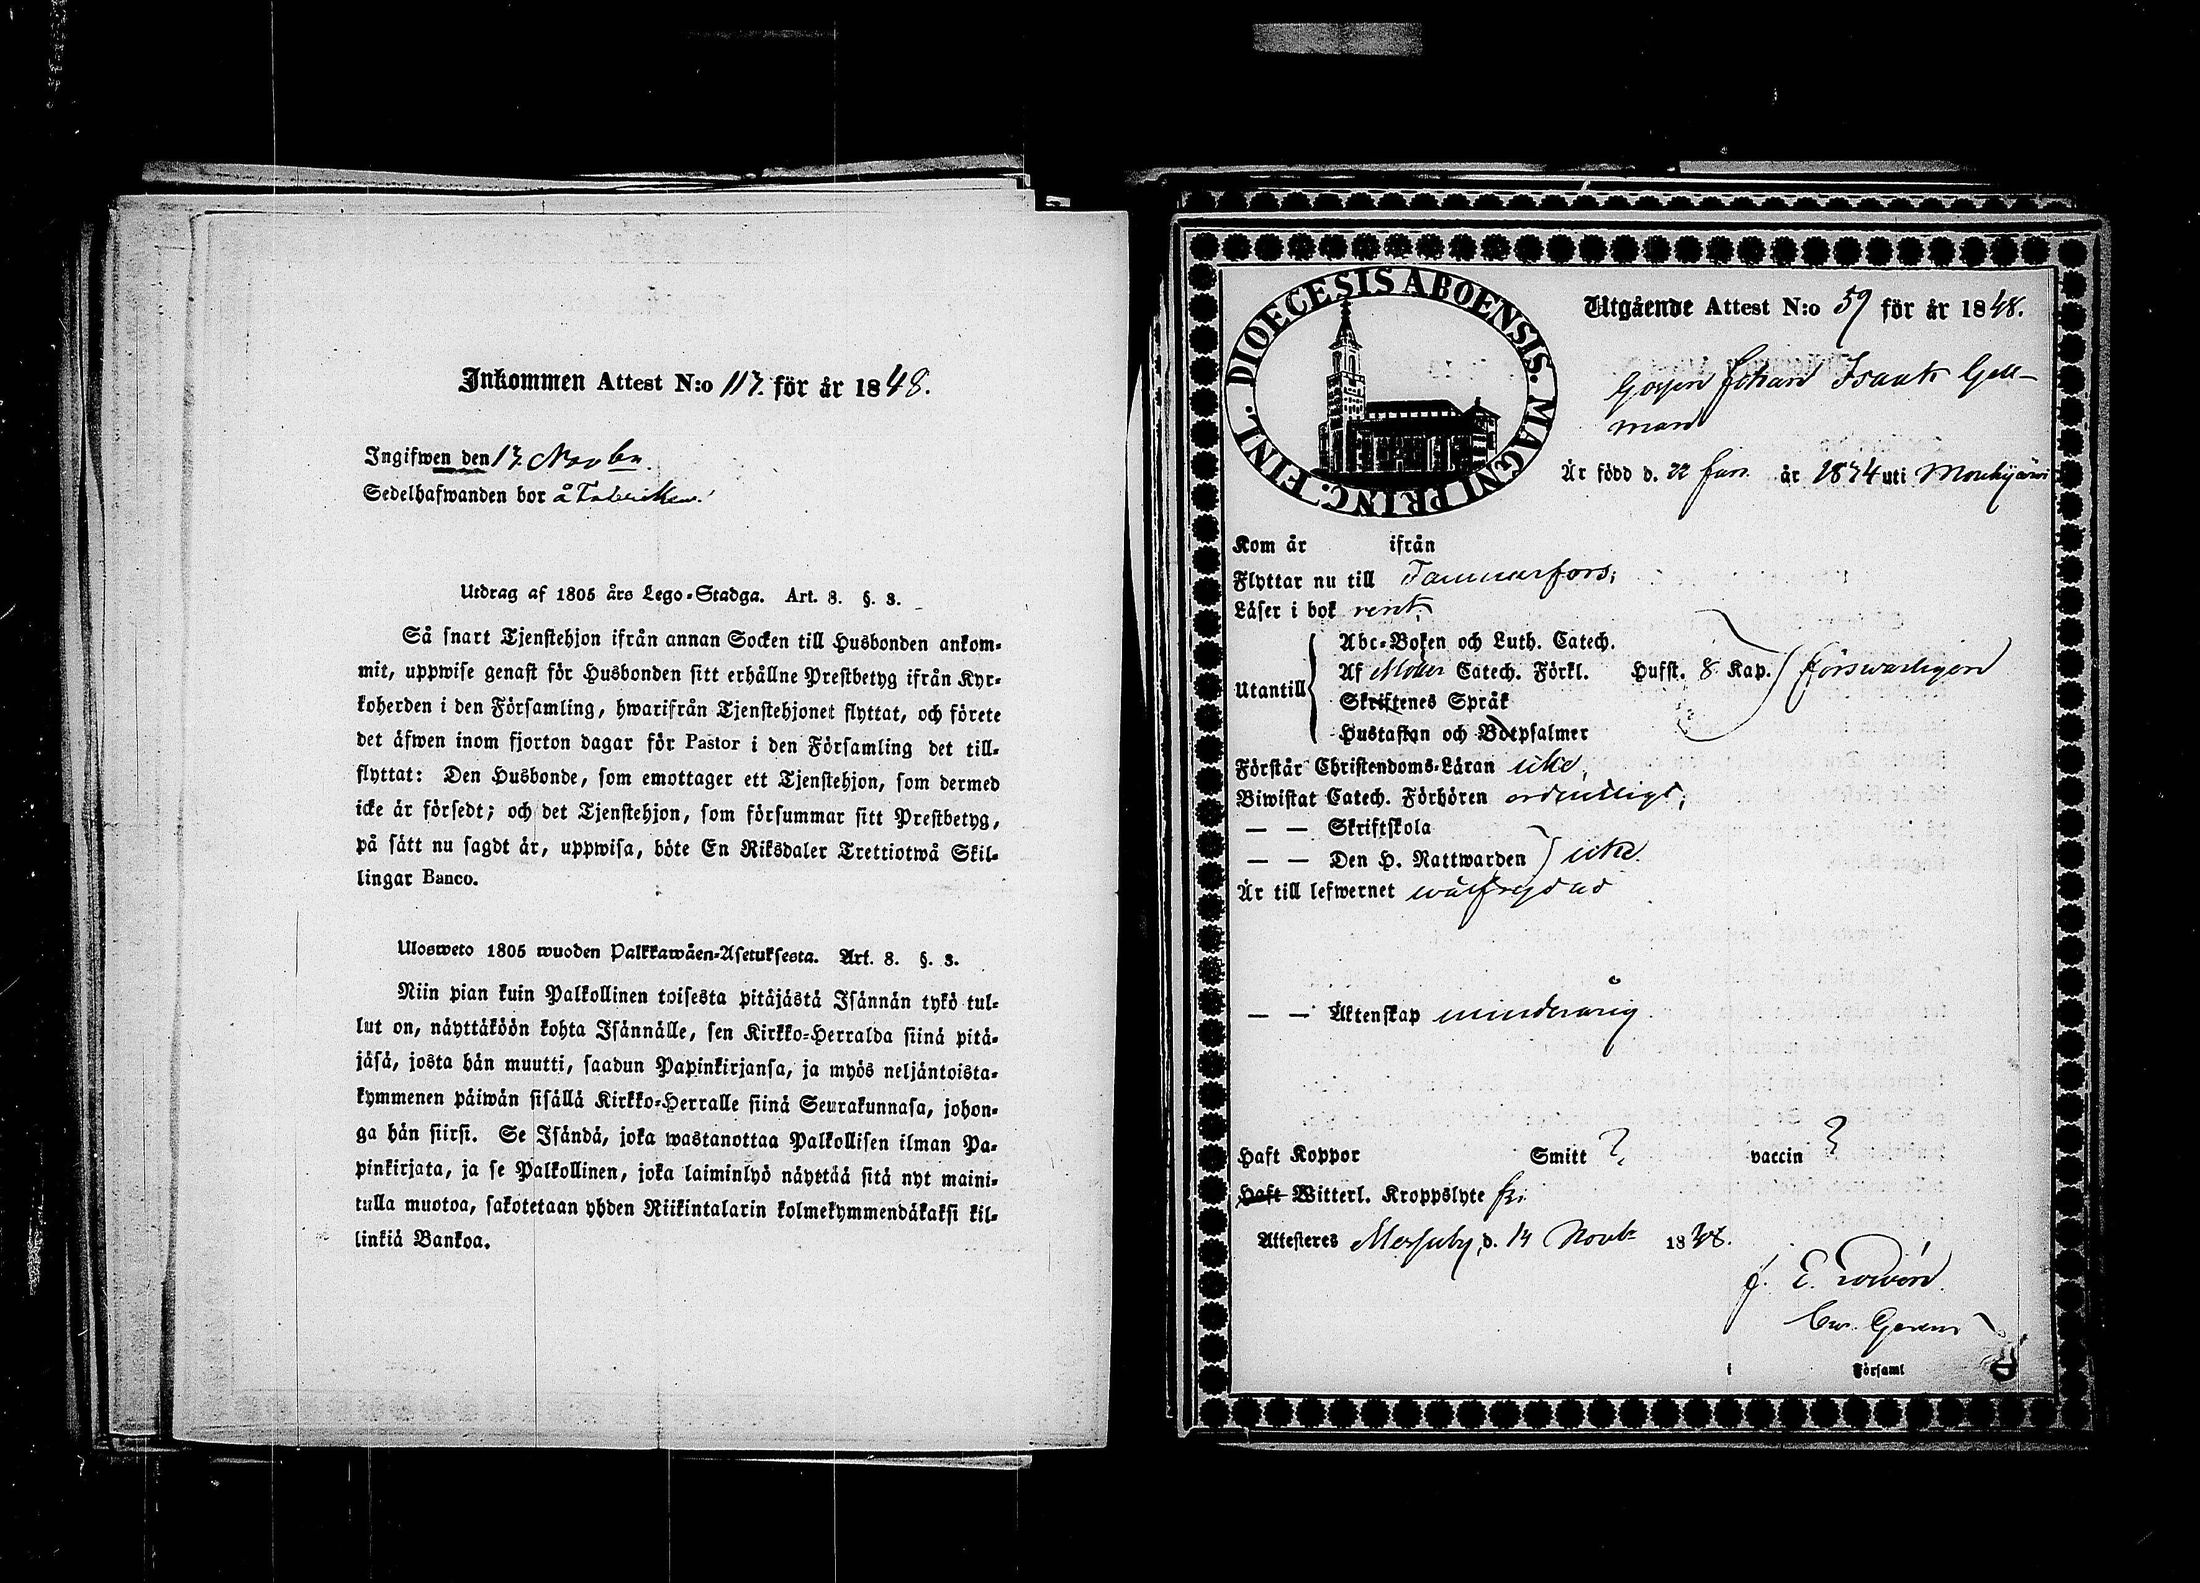 Inkommen Attest N:o 117. för år 1848.
Ingifwen den 17. Novbr.
Sedelhafwanden bor å Fabriken.
Utdrag af 1805 års Lego-Stadga. Art. 8. §. 3.
Så snart Tjenstehjon ifrån annan Socken till Husbonden ankom-
mit, uppwise genast för Husbonden sitt erhållne Prestbetyg ifrån Kyr-
koherden i den Församling, hwarifrån Tjenstehjonet flyttat, och förete
det äfwen inom fjorton dagar för Pastor i den Församling det till-
flyttat: Den Husbonde, som emottager ett Tjenstehjon, som dermed
icke är försedt; och det Tjenstehjon, som försummar sitt Prestbetyg,
på sätt nu sagdt är, uppwisa, böte En Riksdaler Trettiotwå Skil-
lingar Banco.
Ulosweto 1805 wuoden Palkkawäen-Asetuksesta. Art. 8. §. 3.
Niin pian kuin Palkollinen toisesta pitäjästä Isännän tykö tul-
lut on, näyttäköön kohta Isännälle, sen Kirkko-Herralda siinä pitä-
jäsä, josta hän muutti, saadun Papinkirjansa, ja myös neljäntoista-
kymmenen päiwän sisällä Kirkko-Herralle siinä Seurakunnasa, johon-
ga hän siirsi. Se Isändä, joka wastanottaa Palkollisen ilman Pa-
pinkirjata, ja se Palkollinen, joka laiminlyö näyttää sitä nyt maini-
tulla muotoa, sakotetaan yhden Riikintalarin kolmekymmendäkaksi kil-
linkiä Bankoa.
DIOECESIS ABOENSIS. MAGNI PRINC. FINL.
Utgående Attest N:o 59 för år 1848.
Gossen Johan Isaak Gell-
man
Är född d. 22 Jan. år 1834 uti Mouhijärvi
Kom år ifrån
Flyttar nu till Tammerfors;
Läser i bok rent;
Abc-Boken och Luth. Catech.
Utantill Af Möller Catech. Förkl. Hufst. 8 Kap. försvarligen
Skriftenes Språk
Hustaflan och Botpsalmer
Förstår Christendoms-Läran icke,
Biwistat Catech. Förhören ordentligt;
— — Skriftskola
— — Den H. Nattwarden icke.
Är till lefwernet wälfrejdad
— — Äktenskap minderårig
Haft Koppor Smitt ? vaccin ?
Haft Witterl. Kroppslyte fri
Attesteres d. 14 Novbr 1848.
J. E.
i Församl